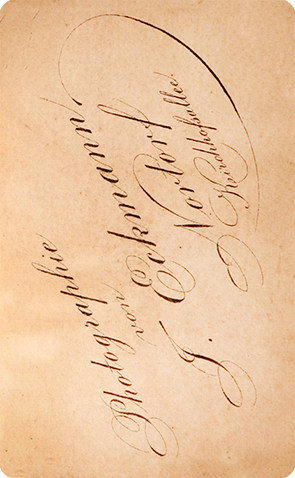 Photographie
von
J. Eckmann,
Nortorf
Kirchhofsallee.